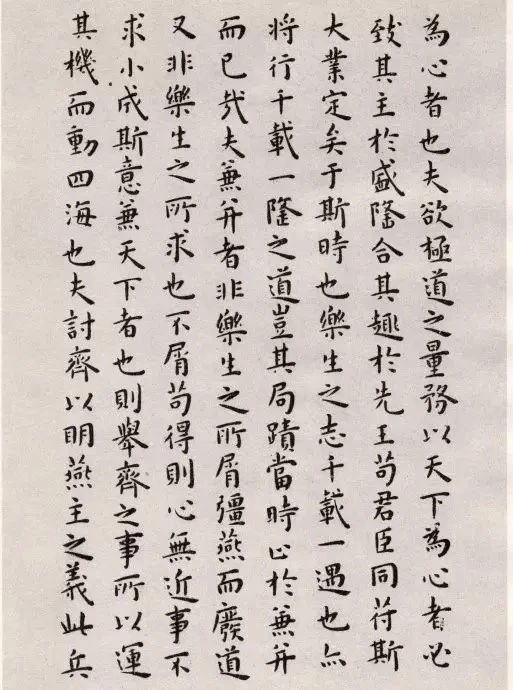 為心者也夫欲極道之量務以天下為心者必
致其主於盛隆合其趣於先王苟君臣同符斯
大業定矣于斯時也樂生之志千載一遇也亦
將行千載一隆之道豈其局蹟當時止於兼并
而已哉夫兼并者非樂生之所屑彊燕而廢道
又非樂生之所求也不屑苟得則心無近事不
求小成斯意兼天下者也則舉齊之事所以運
其機而動四海也夫討齊以明燕主之義此兵